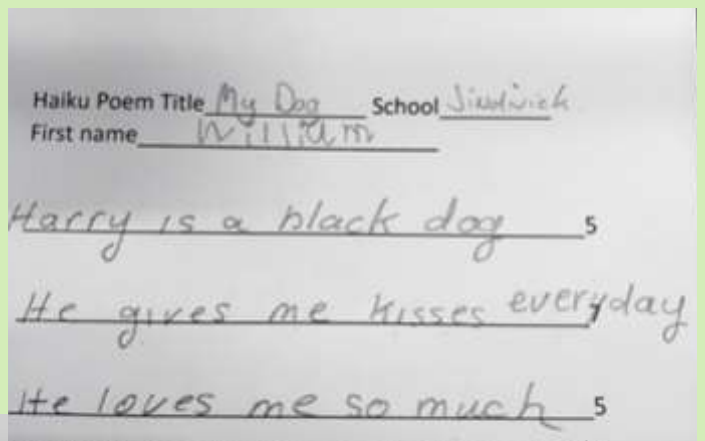 Haiku Poem Title My Dog School Jindivick
First name William
Harry is a black dog 5
He gives me kisses everyday
He loves me so much 5